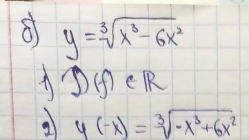 б) y = ∛(x³ - 6x²)
1) D(f) ∈ ℝ
2) y(-x) = ∛(-x³ + 6x²)